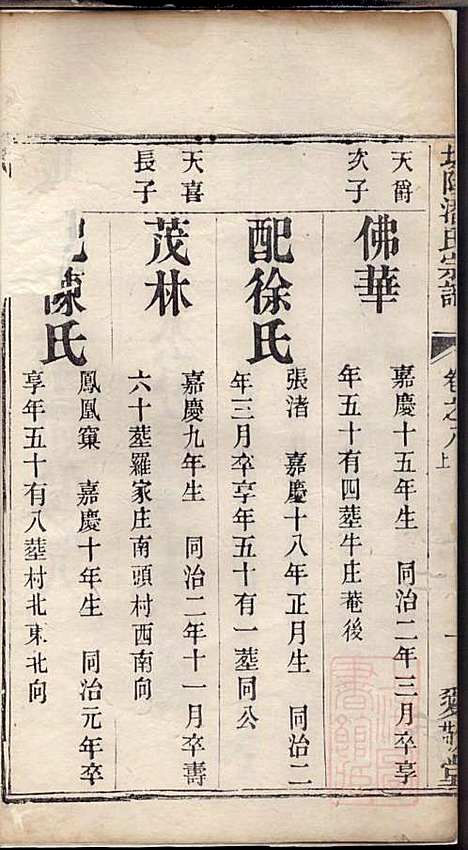 潘氏宗譜
卷之八上
天爵
次子
佛華
嘉慶十五年生 同治二年三月卒享
年五十有四塟牛庄菴後
配徐氏
張渚 嘉慶十八年正月生 同治二
年三月卒享年五十有一塟同公
天喜
長子
茂林
嘉慶九年生 同治二年十一月卒壽
六十塟羅家庄南頭村西南向
陳氏
鳳凰窠 嘉慶十年生 同治元年卒
享年五十有八塟村北東北向